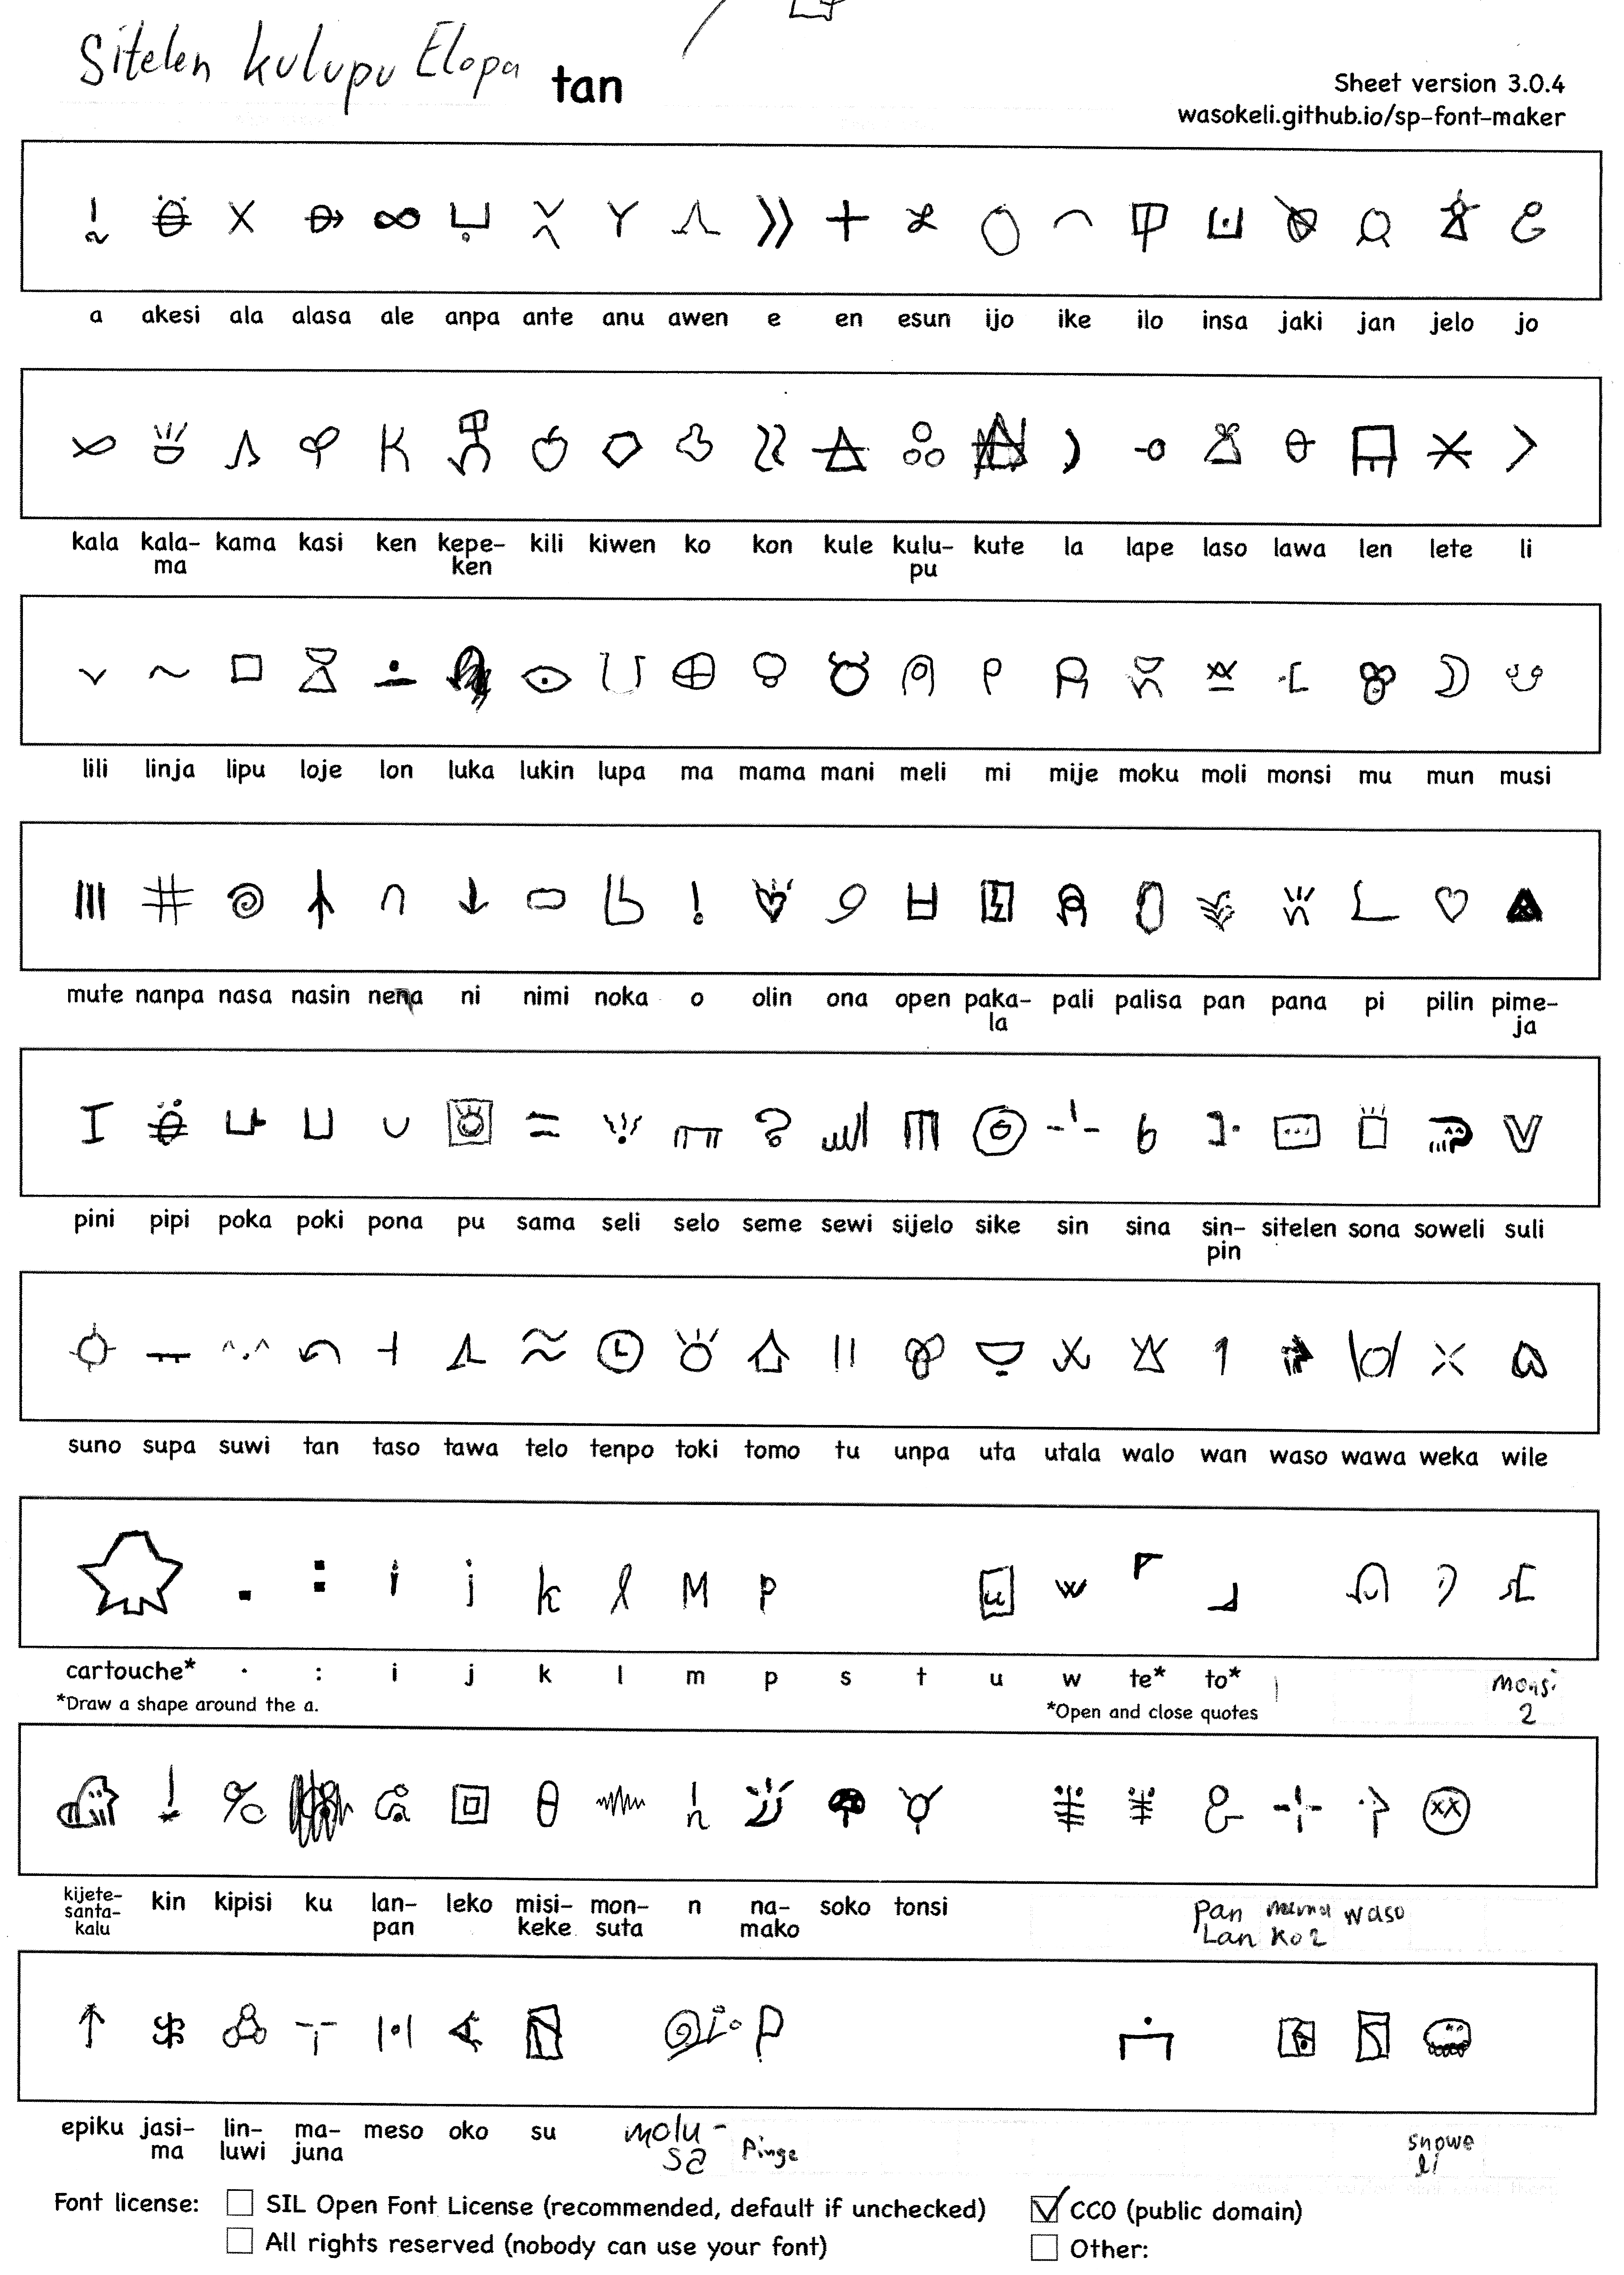 Sitelen kulupu Elopa tan
Sheet version 3.0.4
wasokeli.github.io/sp-font-maker
a akesi ala alasa ale anpa ante anu awen e en esun ijo ike ilo insa jaki jan jelo jo
kala kala- kama kasi ken kepe- kili kiwen ko kon kule kulu- kute la lape laso lawa len lete li
ma ken pu
lili linja lipu loje lon luka lukin lupa ma mama mani meli mi mije moku moli monsi mu mun musi
mute nanpa nasa nasin nena ni nimi noka o olin ona open paka- pali palisa pan pana pi pilin pime-
la ja
pini pipi poka poki pona pu sama seli selo seme sewi sijelo sike sin sina sin- sitelen sona soweli suli
pin
suno supa suwi tan taso tawa telo tenpo toki tomo tu unpa uta utala walo wan waso wawa weka wile
. : i j k l M p u w
cartouche* · : i j k l m p s t u w te* to*
*Draw a shape around the a.
*Open and close quotes
monsi
2
n
kijete- kin kipisi ku lan- leko misi- mon- n na- soko tonsi
santa- pan keke suta mako
kalu
pan mama waso
Lan ko2
epiku jasi- lin- ma- meso oko su
ma luwi juna
molu-
sa
pinge
snowe
li
Font license: SIL Open Font License (recommended, default if unchecked) CC0 (public domain)
All rights reserved (nobody can use your font) Other: